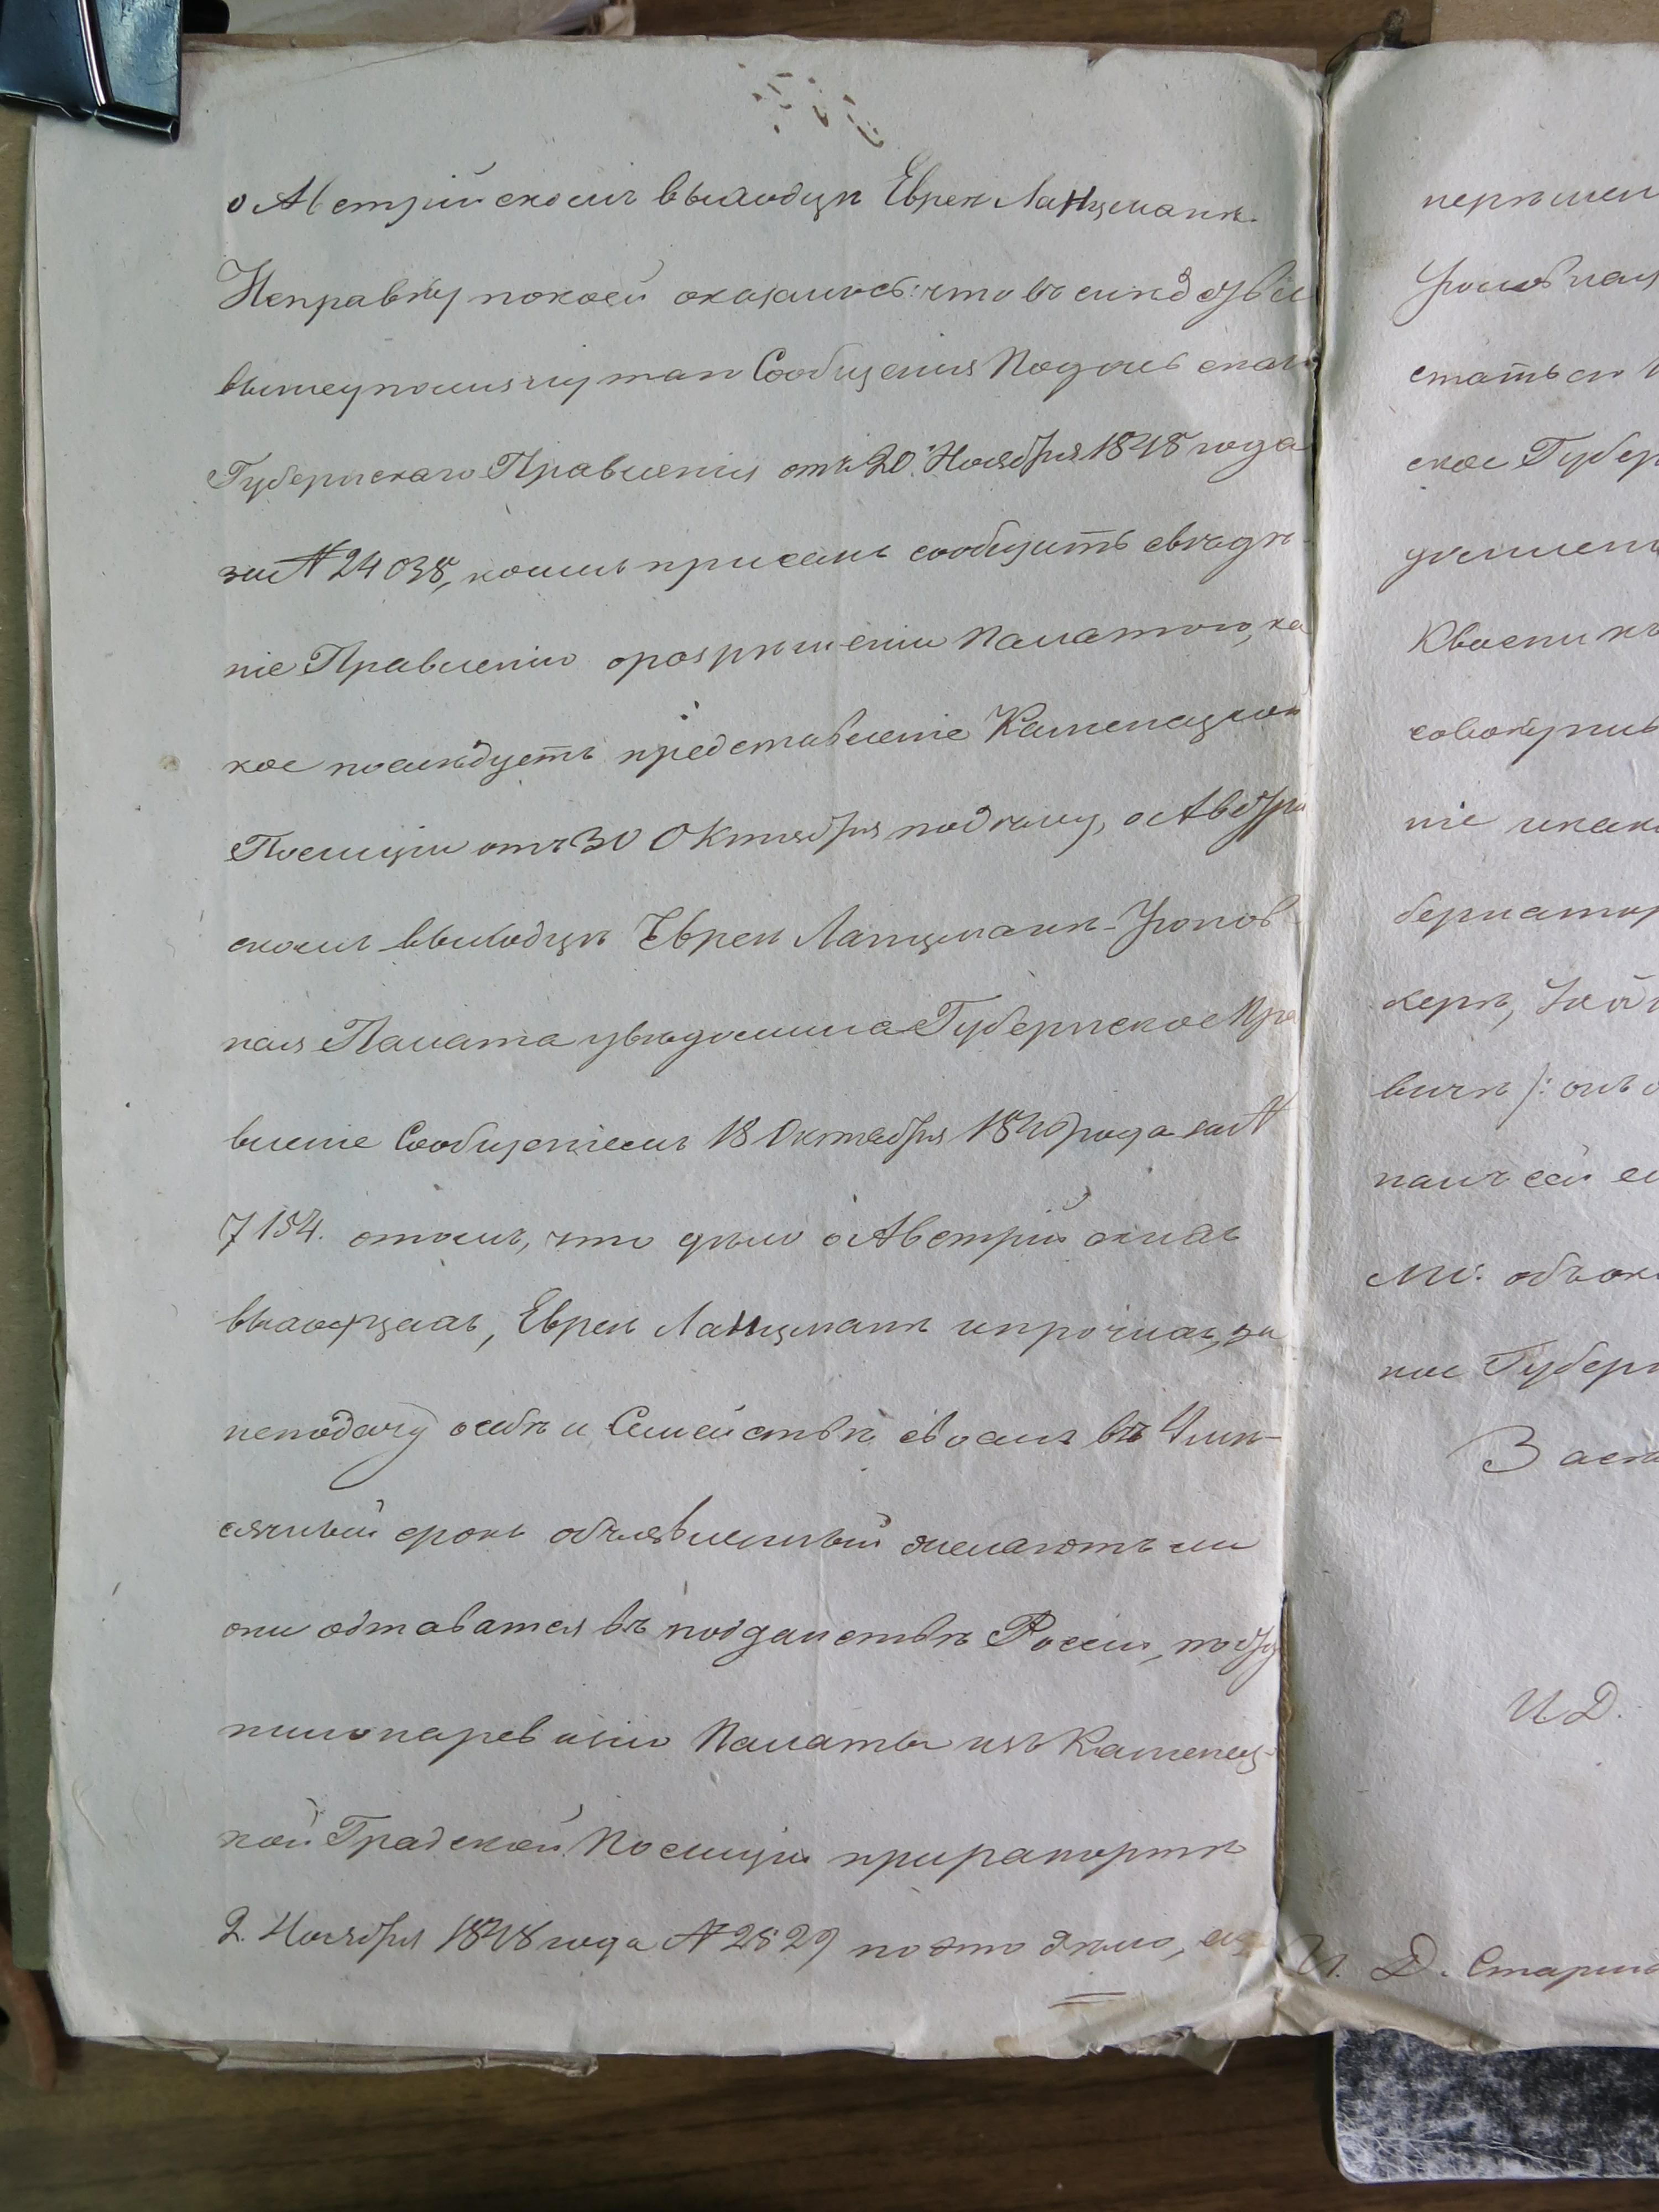 о Австрійскомъ выходцѣ Евреѣ Ланцманѣ.
Несправку по коей оказалось: что въ слѣдствіи
вышеупомянутаго Сообщенія Подольскаго
Губернскаго Правленія отъ 20. Ноября 1848 года
за № 24038, коимъ сообщить свѣдѣ-
ніе Правленію о разрѣшеніи Палатою, ка
кое послѣдуетъ представленіе Каменецкой
Полиціи отъ 30 Октября подѣлу, о Австрій
скомъ выходцѣ Евреѣ Ланцманѣ Уголов-
ная Палата увѣдомила Губернское Пра
вленіе Сообщеніемъ 18 Октября года за №
7154. о томъ, что дѣло о Австрійскихъ
выходцахъ, Евреѣ Ланцманѣ и прочихъ, за
неподачу о себѣ и Семействѣ своемъ въ 4 мѣ-
сячный срокъ объявленный желаютъ ли
они оставатся въ подданствѣ Россіи, посту
пило на ревизію Палаты изъ Каменец-
кой Градской Полиціи при рапортѣ
2. Ноября 1848 года № 2829 по это дѣло,
перѣшен
Уголовная
статьею
ское Губер
Квасникъ
совокупив
ніе
бернатор
керъ,
вичъ): онъ
намъ сей
ное Губерн
И. Д.
И. Д. Старш